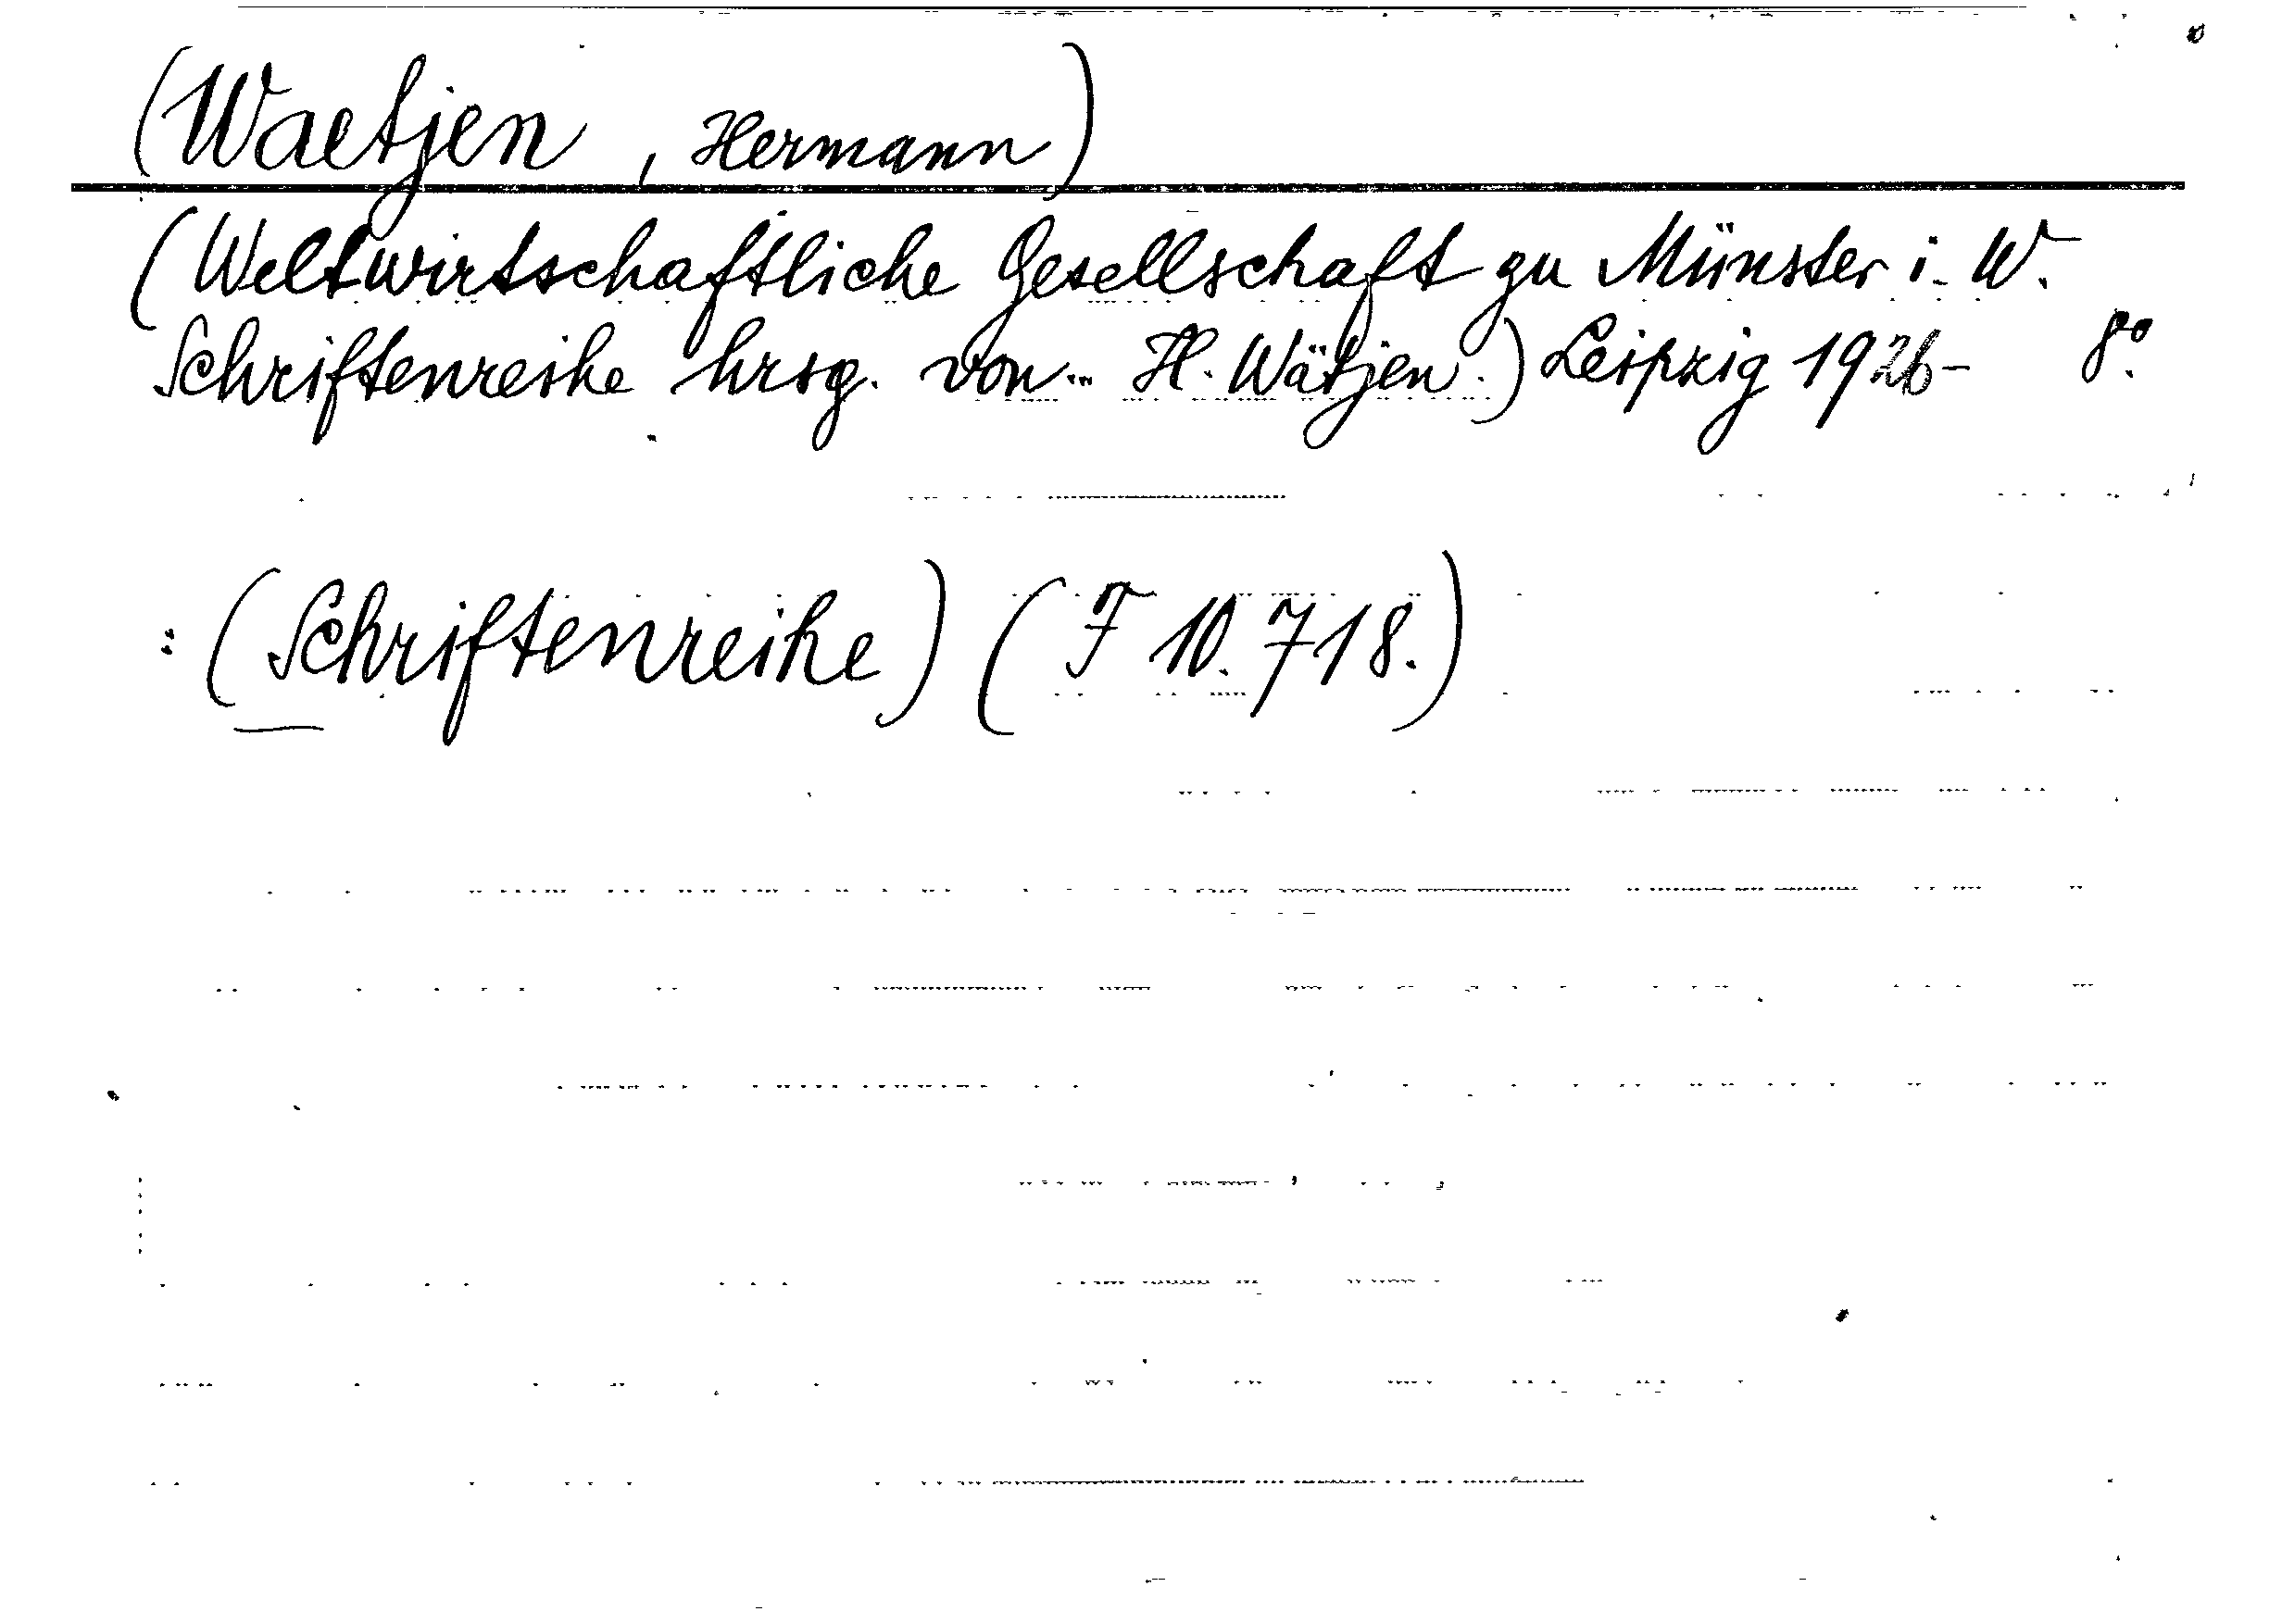 (Waetjen, Hermann)
(Weltwirtschaftliche Gesellschaft zu Münster i. W.
Schriftenreihe hrsg. von... H. Wätjen.) Leipzig 1926- 8°.
: (Schriftenreihe) (F 10.718.)